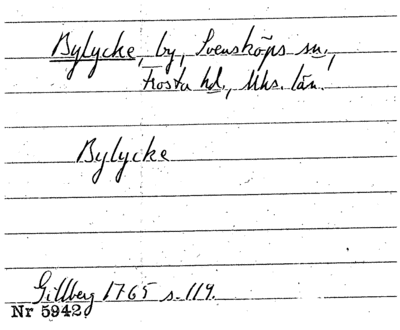 Bylycke, by, Svensköps sn.,
Frosta hd., Mhs. län.
Bylycke
Gillberg 1765 s. 119.
Nr 5942